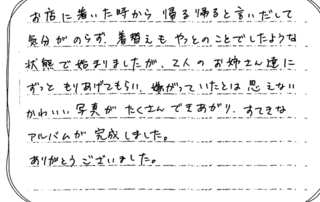 お店に着いた時から 帰る帰ると言いだして
気分がのらず、着替えも やっとのことでしたような
状態で始まりましたが、2人の お姉さん達に
ずっと もりあげてもらい、嫌がっていたとは 思えない
かわいい 写真が たくさん できあがり、すてきな
アルバムが 完成しました。
ありがとうございました。